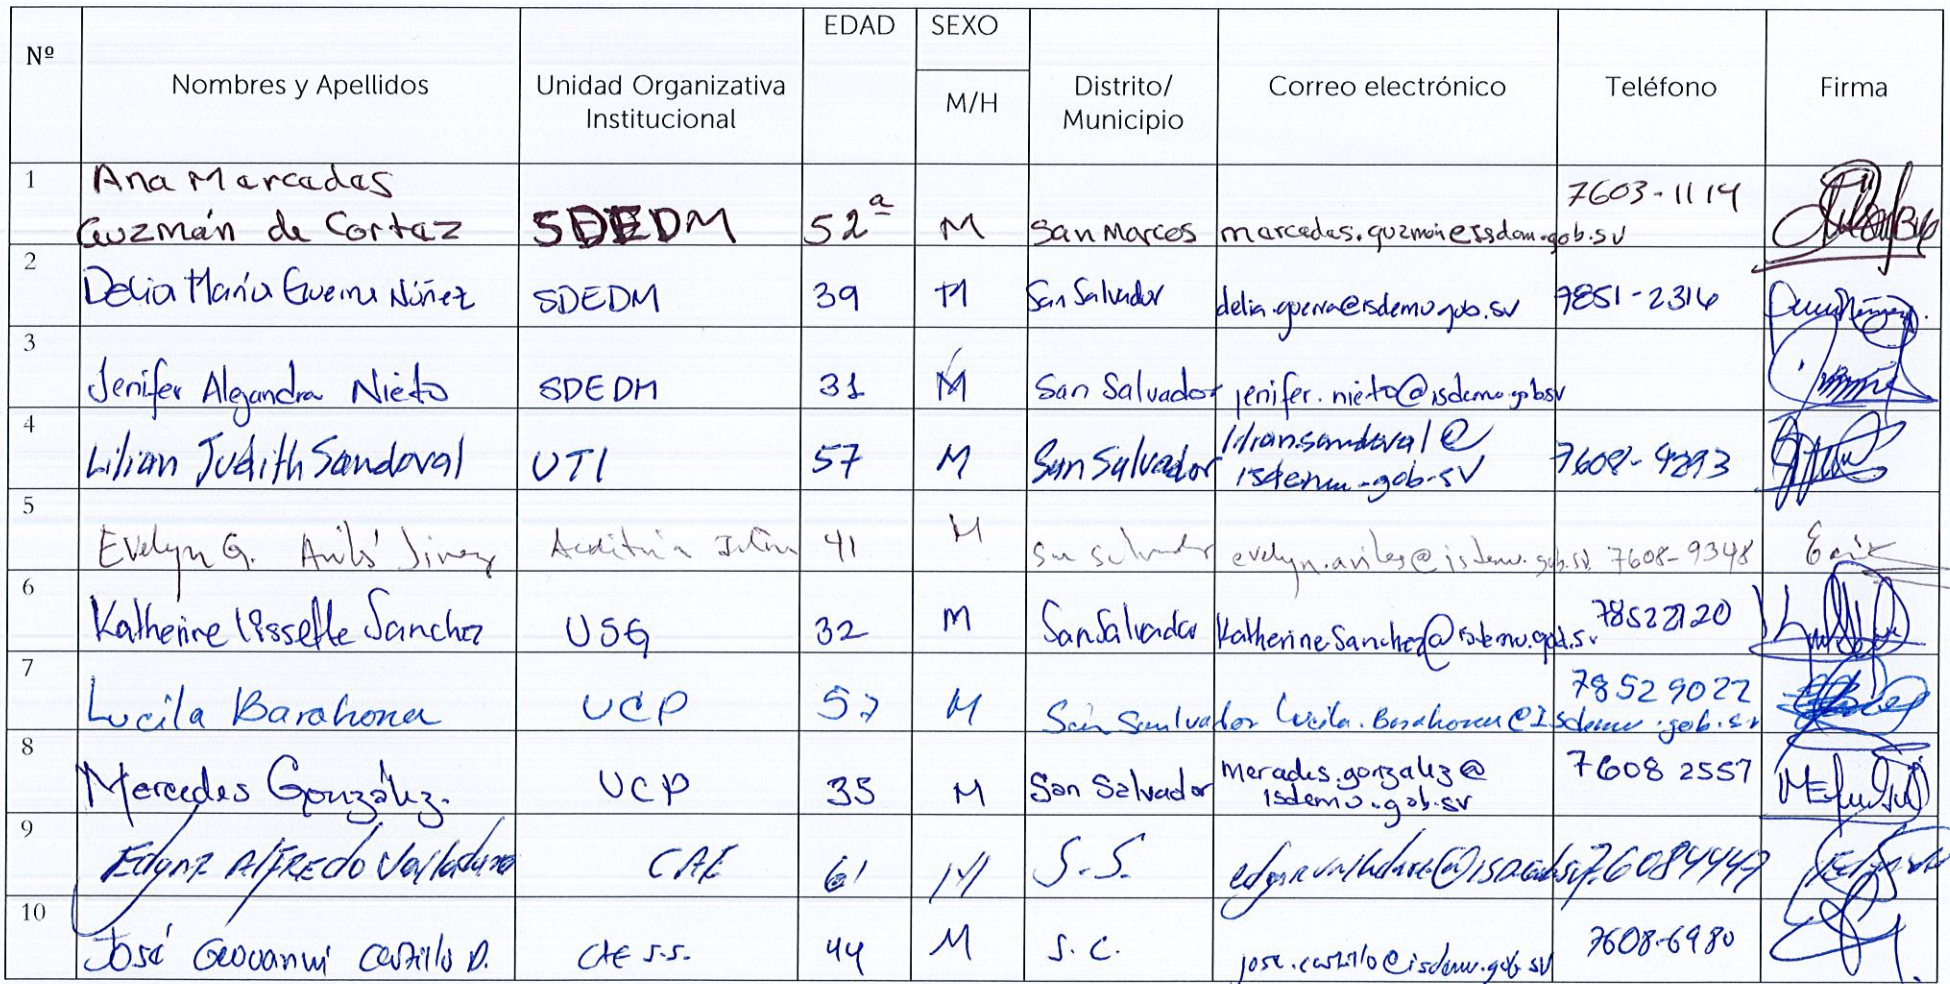 Nº Nombres y Apellidos Unidad Organizativa Institucional EDAD SEXO M/H Distrito/ Municipio Correo electrónico Teléfono Firma
1 Ana Mercedes Guzmán de Cortez SDEDM 52ª M San Marcos mercedes.guzman@isdemu.gob.sv 7603-1114
2 Delia María Guerra Núñez SDEDM 39 M San Salvador delia.guerra@isdemu.gob.sv 7851-2316
3 Jenifer Alejandra Nieto SDEDM 31 M San Salvador jenifer.nieto@isdemu.gob.sv
4 Lilian Judith Sandoval UTI 57 M San Salvador lilian.sandoval@isdemu.gob.sv 7608-9293
5 Evelyn G. Avilés Auditoria 41 M San Salvador evelyn.aviles@isdemu.gob.sv 7608-9348
6 Katherine Lissette Sanchez USG 32 M San Salvador Katherine.Sanchez@isdemu.gob.sv 78522120
7 Lucila Barahona UCP 57 M San Sanlvador Lucila.Barahona@Isdemu.gob.sv 78529022
8 Mercedes González. UCP 35 M San Salvador mercedes.gonzalez@isdemu.gob.sv 7608 2557
9 Edgar Alfredo Valladares CAE 61 S.S. 76084447
10 José Geovanni Castillo D. CAE S.S. 44 M S.C. jose.castillo@isdemu.gob.sv 7608-6980